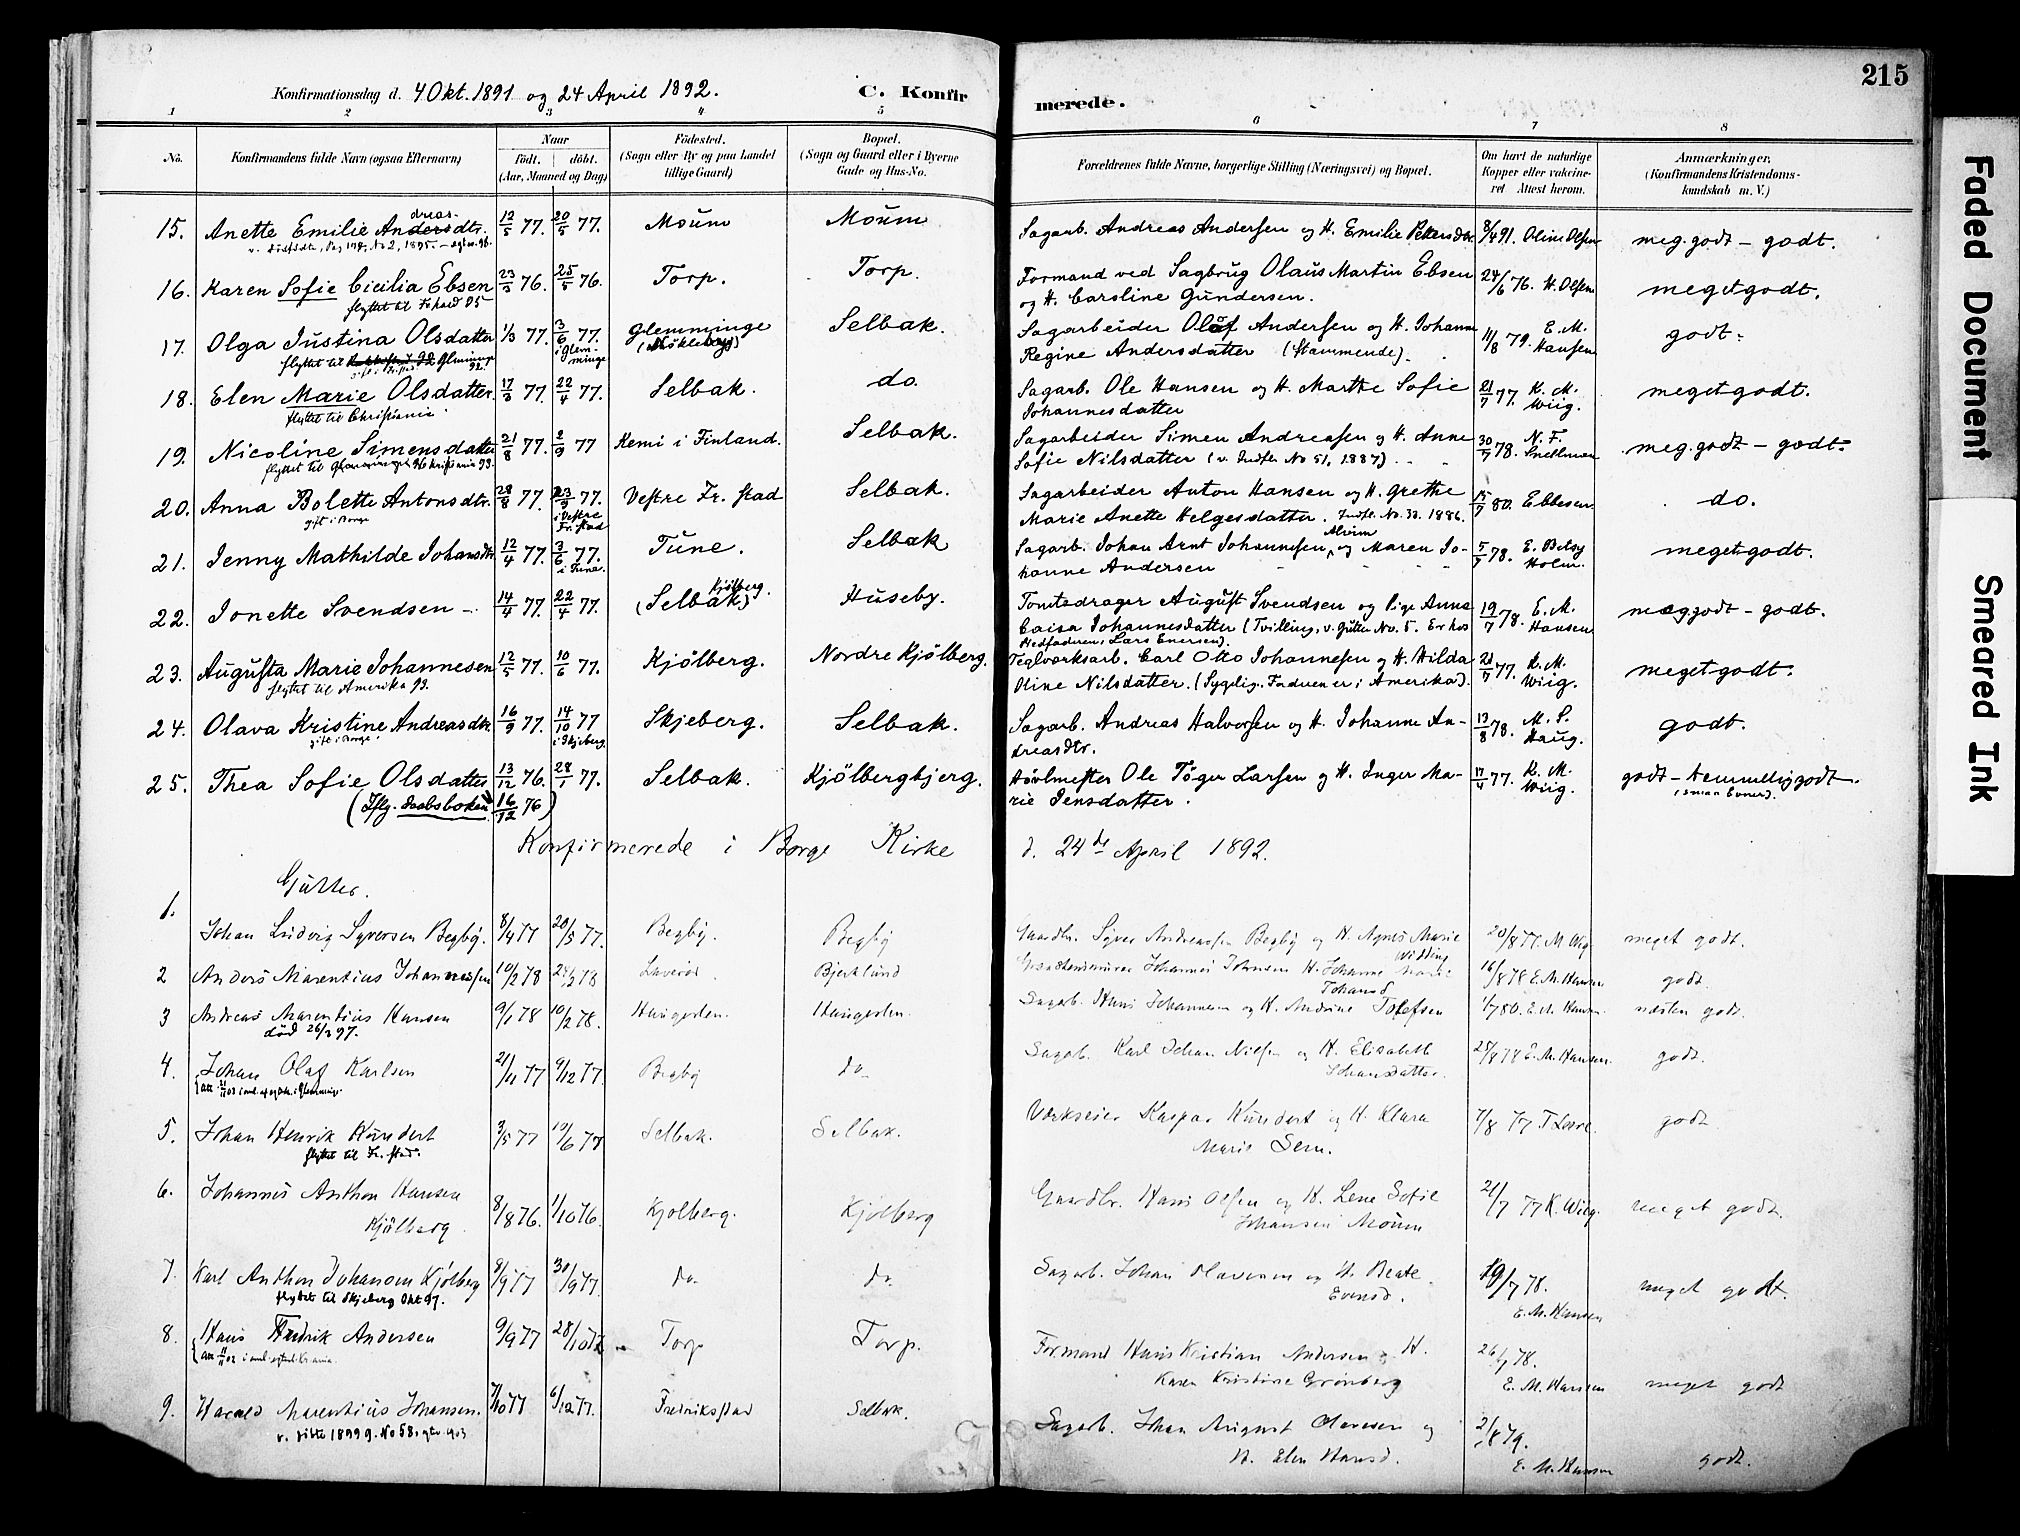 215
Konfirmationsdag d. 4 Okt. 1891 og 24 April 1892. C. Konfirmerede.
1 2 3 4 5 6 7 8
No. Konfirmandens fulde Navn (ogsaa Efternavn) Naar födt. döbt. (Aar, Maaned og Dag) Födested. (Sogn eller By og paa Landet tillige Gaard) Bopæl. (Sogn og Gaard eller i Byerne Gade og Hus-No. Forældrenes fulde Navne, borgerlige Stilling (Næringsvei) og Bopæl. Om havt de naturlige Kopper eller vaccineret Attest herom. Anmærkninger, (Konfirmandens Kristendomskundskab m. V.)
15. Anette Emilie Andersdtr. dreas- 12/5 77. 20/5 77. Moum Moum Sagarb. Andreas Andersen og H. Emilie Pettersdtr. 8/4 91. Oline Olsen meg. godt - godt.
16. Karen Sofie Cicilia Ebsen 23/3 76. 25/5 76. Torp. Torp. Formand ved Sagbrug Olaus Martin Ebsen 24/6 76. H. Olsen meget godt.
flyttet til Frhald 95 og H. Caroline Gundersen.
17. Olga Justina Olsdatter 1/3 77. 3/6 77. i Glemminge Glemminge Selbak. Sagarbeider Olof Andersen og H. Johanne 11/8 79. E. M. Hansen godt.
Regine Andersdatter (Stammende).
18. Elen Marie Olsdatter 17/3 77. 22/4 77. Selbak. do. Sagarb. Ole Hansen og H. Marthe Sofie 21/7 77. K. M. Wiig. meget godt.
flyttet til Christiania Johannesdatter
19. Nicoline Simensdatter 21/8 77. 2/9 77 Kemi i Finland. Selbak. Sagarbeider Simen Andreasen og H. Anne 30/7 78. N. F. Snellman meg. godt - godt.
Sofie Nilsdatter (v. Indfl. No 51, 1887)
20. Anna Bolette Antonsdtr. 28/8 77. 23/9 77. i Vestre Fr. stad Vestre Fr. stad Selbak. Sagarbeider Anton Hansen og H. Grethe 15/7 80. Ebbesen do.
gift i Borge Marie Anette Helgesdatter. Indfl. No. 33. 1886.
21. Jenny Mathilde Johansdtr 12/4 77. 3/6 77. i Tune. Tune. Selbak Sagarb. Johan Arnt Johannesen Alvim og Maren Jo- 5/7 78. E. Betsy Holm. meget godt.
hanne Andersen
22. Jonette Svendsen - 14/4 77. 22/4 77. (Selbak) Kjölberg. Huseby. Tomtedrager August Svendsen og Pige Anna 19/7 78. E. M. Hansen meg. godt - godt.
Caisa Johannesdatter (Tvilling, v. Gutter No. 5. Er hos Stedfaderen, Lars Enersen).
23. Augusta Marie Johannesen 12/5 77. 10/6 77. Kjölberg. Nordre Kjölberg. Teglværksarb. Carl Otto Johannesen og H. Hilda 21/7 77. K. M. Wiig. meget godt.
flyttet til Amerika 93. Oline Nilsdatter. (Sygelig. Faderen er i Amerika).
24. Olava Kristine Andreasdtr. 16/9 77. 14/10 77 i Skjeberg. Skjeberg. Selbak. Sagarb. Andreas Halvorsen og H. Johanne An- 13/8 78. M. S. Haug. godt.
gift i Borge. dreasdtr.
25. Thea Sofie Olsdatter 13/12 76. 28/1 77. Selbak. Kjölbergbjerg. Hövlmester Ole Töger Larsen og H. Inger Ma- 17/4 77. K. M. Wiig. godt - temmelig godt.
(Iflg. Daabsboken 16/12 76) rie Jensdatter. (smaa Evner).
Konfirmerede i Borge Kirke d. 24de April 1892.
Gutter.
1. Johan Ludvig Syversen Begby. 8/4 77 20/5 77. Begby. Begby Gaardbr. Syver Andreasen Begby og H. Agnes Marie 20/8 77. M Wiig meget godt.
2 Anders Marentius Johannessen 10/2 78 24/3 78 Bjerklund Johannes Johnsen H. Johanne Marie 16/8 78 E. M. Hansen godt.
3 Andreas Marentius Hansen 9/1 78 10/2 78. Haugesten. Haugesten. Sagarb. Hans Johannesen og H. Andrine Tolefsen 1/7 80. E. M. Hansen næsten godt.
död 26/2 97.
4. Johan Olaf Karlsen 21/11 77 9/12 77. Begby do Sagarb. Karl Johan Nilsen og H. Elisabeth 25/8 78 E. M. Hansen. godt.
Johansdatter.
5. Johan Henrik Kundert 3/5 77 10/6 77 Selbak. Selbak. Værkseier Kaspar Kundert og H. Klara 7/8 77 godt
flyttet til Fr. stad. Marie Sem.
6. Johannes Anthon Hansen 8/8 76. 1/10 76. Kjolberg. Kjolberg Gaardbr. Hans Olsen og H. Lene Sofie 21/7 77 K. Wiig. meget godt.
Kjölberg Johansen Moum
7. Karl Anthon Johansen Kjolberg 8/9 77 30/9 77. do. do. Sagarb. Johan Olavesen og H. Beate 19/7 78. meget godt.
flyttet til Skjeberg Okt 97. Evensd. E. M. Hansen
8. Hans Fredrik Andersen 9/9 77 28/10 77 Torp Torp. Formand Hans Kristian Andersen og H. 26/7 78.
Karen Kristine Grönberg E. M. Hansen meget godt
9. Harald Marentius Johansen. 7/10 77 6/12 77. Fredriksstad Selbak. Sagarb. Johan August Olavesen og 2/8 79.
H. Elen Hansd. E. M. Hansen godt.
Faded Document
Smeared Ink